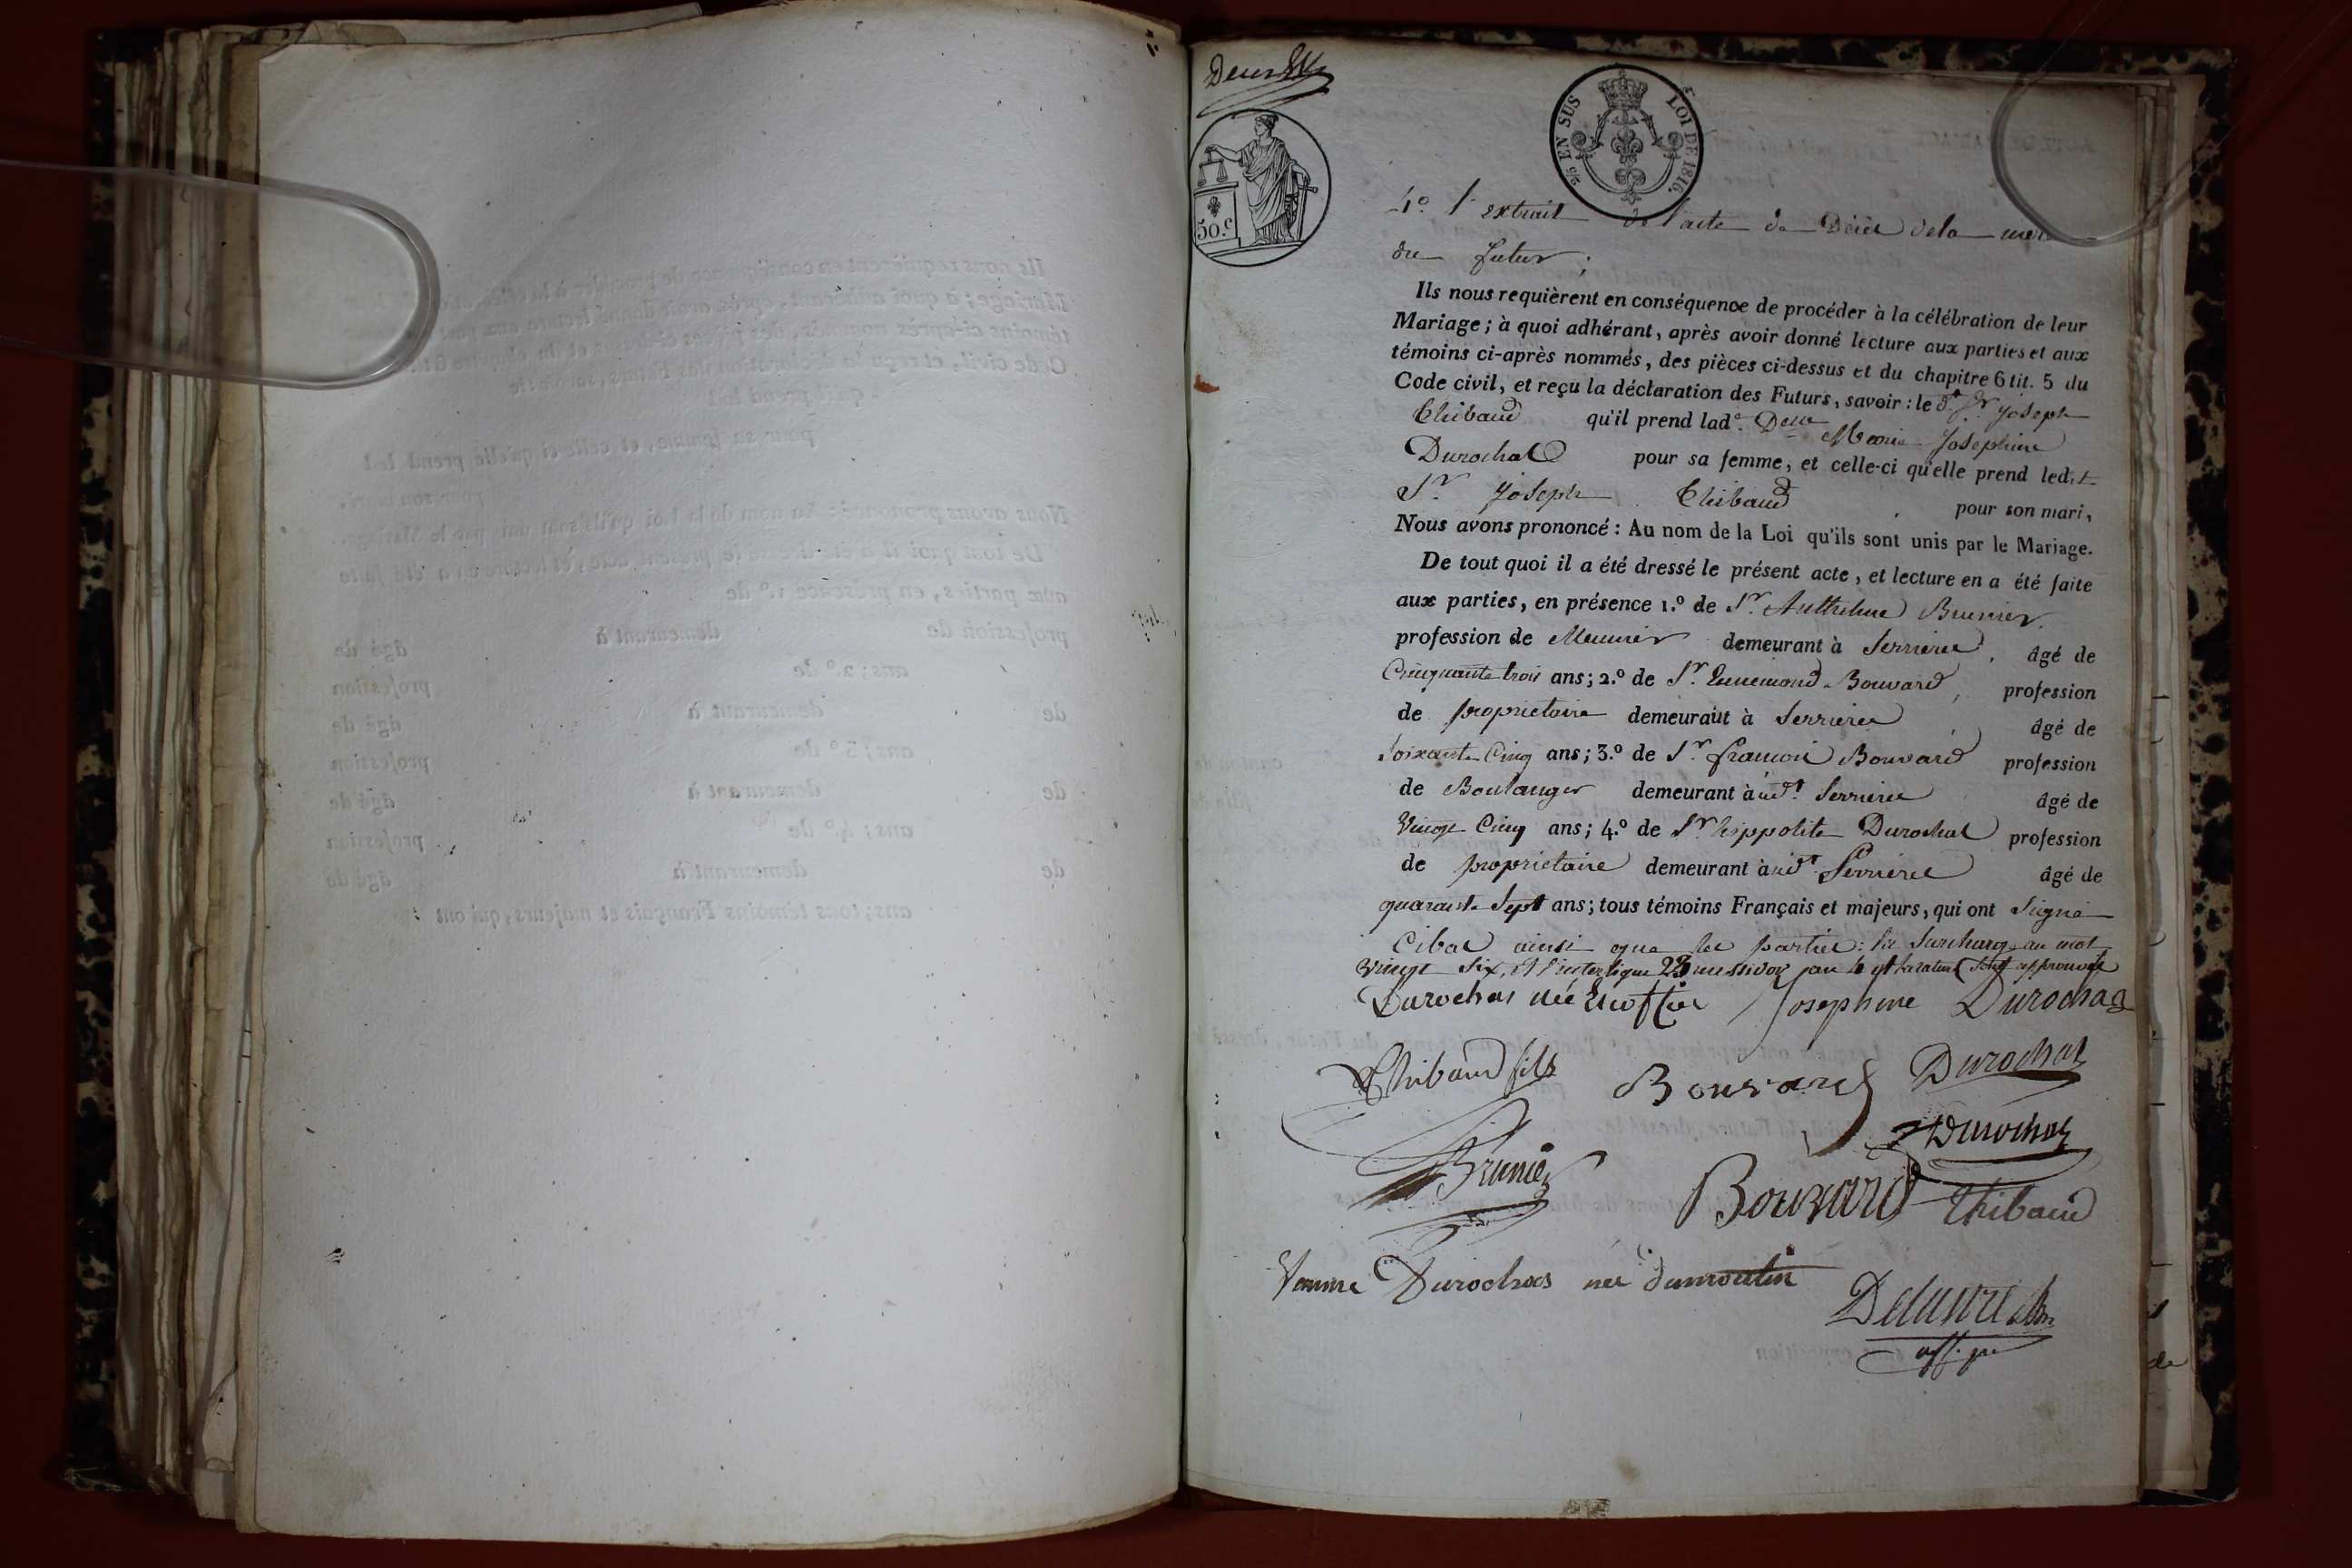 EN SUS
LOI DE 1816.
50.c
4.o l'extrait de l'acte de Décès de la mère
du futur ;
Ils nous requièrent en conséquence de procéder à la célébration de leur
Mariage ; à quoi adhérant, après avoir donné lecture aux parties et aux
témoins ci-après nommés, des pièces ci-dessus et du chapitre 6 tit. 5 du
Code civil, et reçu la déclaration des Futurs, savoir : le dt Sr Joseph
Thibaud qu'il prend lade. Delle Marie Josephine
Durochat pour sa femme, et celle-ci qu'elle prend ledit
Sr Joseph Thibaud pour son mari,
Nous avons prononcé : Au nom de la Loi qu'ils sont unis par le Mariage.
De tout quoi il a été dressé le présent acte, et lecture en a été faite
aux parties, en présence 1.o de Sr. Anthelme Brunier
profession de Meunier demeurant à Serrieres, âgé de
Cinquante trois ans ; 2.o de Sr. Ennemond Bouvard, profession
de proprietaire demeurant à Serrieres âgé de
Soixante Cinq ans ; 3.o de Sr. françois Bouvard profession
de Boulanger demeurant à udt. Serrieres âgé de
Vingt Cinq ans ; 4.o de Sr hippolite Durochat profession
de proprietaire demeurant à udt Serrieres âgé de
quarante Sept ans ; tous témoins Français et majeurs, qui ont Signé
ainsi que les parties : la Surcharge au mot
vingt Six, et l'interligne 23 messidor an 4 et la rature sont approuvés
Durochat née Josephine Durochat
Thibaud fils Bouvard Durochat
Durochat
Brunier
Bouvard Thibaud
femme Durochat née dumoulin